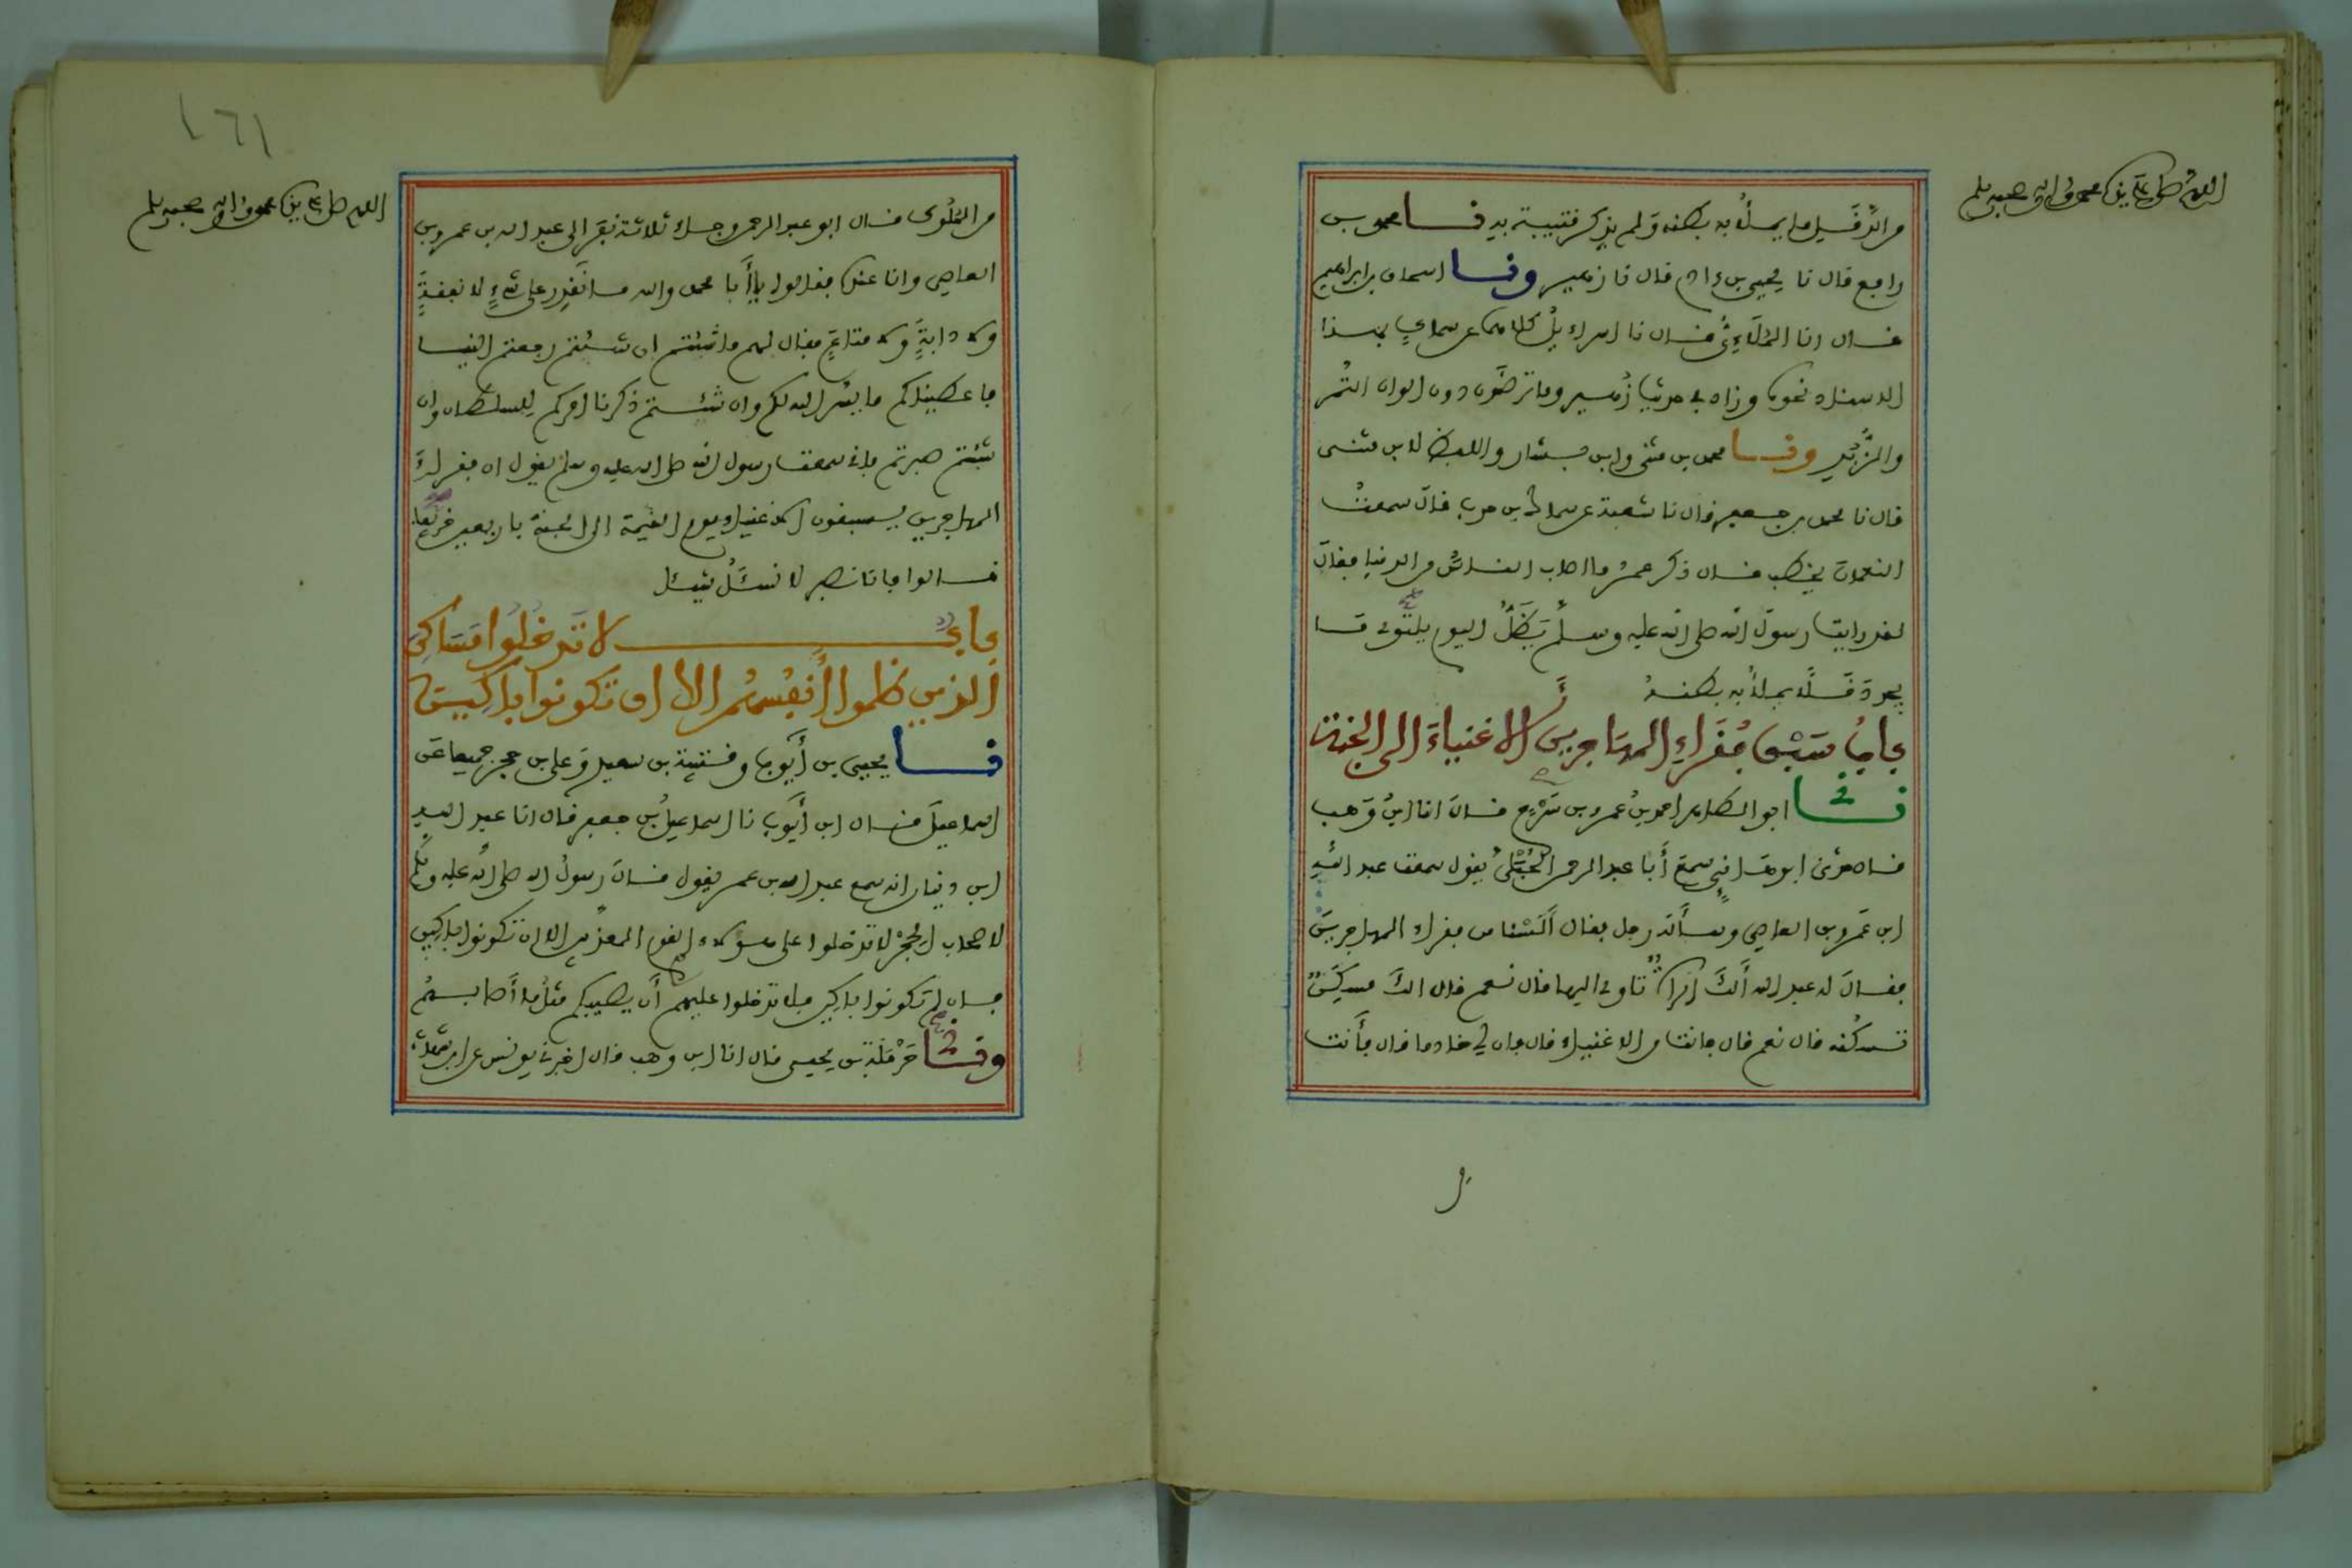 اللهم صل على سيدنا محمد وآله وصحبه وسلم
من الدَّقَل ما يملأُ به بطنه ولم يذكر قتيبة به نا محمد بن
رافع قال نا يحيى بن ءادم قال نا زهير ونا اسحاق بن ابراهيم
قال انا المُلَاءِيُّ قال نا اسراءيلُ كلاهما عن سماكٍ بهذا
الاسناد نحوه وزاد في حديث زُهير وما ترضَون دون الوان التمر
والزُّبْدِ ونا محمد بن مثنى وابن بشار واللفظ لابن مثنى
قال نا محمد بن جعفر قال نا شعبة عن سماك بن حرب قال سمعتُ
النعمان يخطب قال ذكر عمرُ ما اصاب الناسُ من الدنيا فقال
لقد رايت رسول الله صلى الله عليه وسلم يَظَلُّ اليوم يلتوي مـا
يجد دَقَلًا يملأُ به بطنهُ
بابُ سَبْق فُقَراءِ المهاجرين الاغنياءَ الى الجنة
نا ابو الطاهر احمد بنُ عمرو بن سَرْحٍ قال انا ابنُ وَهب
قال حدثني ابو هانيٍ سمع أبا عبد الرحمن الحُبُلىَّ يقول سمعت عبد الله
ابن عَمرو بن العاصي وسأَله رجل فقال أَلسْنا من فقراء المهاجرينَ
فقال له عبد الله أَلكَ امرأةٌ تاوي اليها قال نعم قال الكَ مسكَنٌ
تسكُنه قال نعم قال فانت من الاغنياء قال فان لي خادما قال فأَنت
اللهم صل على سيدنا محمد وآله وصحبه وسلم
١٦١
من المُلُوك قال ابو عبد الرحمن وجاء ثلاثة نَفَر الى عبد الله بن عمرو بن
العاصي وانا عنده فقالوا يا أَبا محمد والله ما نَقْدِر على شيءٍ لا نفقةٍ
ولا دابةٍ ولا متاعٍ فقال لهم ما شئتم ان شئتم رجعتم الينا
فاعطيناكم ما يسر الله لكم وان شئتم ذكرنا امركم للسلطان وان
شئتم صبرتم فاني سمعت رسول الله صلى الله عليه وسلم يقول ان فقراءَ
المهاجرين يسبقون الاغنياء يوم القيمة الى الجنة باربعين خريفا
قالوا فانا نصبر لا نسئَلُ شيئا
بابٌ لا تَدخُلُوا مَسَاكِنَ
الذين ظلموا أَنفُسهُم الا ان تكونوا باكِينَ
نا يحيى بن أَيُّوبَ وقتيبة بن سعيد وعلى بن حجر جميعا عَن
اسماعيلَ قال ابن أَيُّوبَ نا اسماعيلُ بن جعفر قال انا عبد الله
ابن دينار انه سمع عبد الله بن عمر يقول قال رسولُ الله صلى الله عليه وسلم
لاصحاب الحِجْر لا تدخلوا على هؤلاء القوم المعذبين الا ان تكونوا باكين
فان لم تكونوا باكين فلا تدخلوا عليهم أَن يصيبكم مثلُ ما أَصابهُم
ونا حَرْمَلَة بن يحيى قال انا ابن وهب قال اخبرني يونس عن ابن شهاب